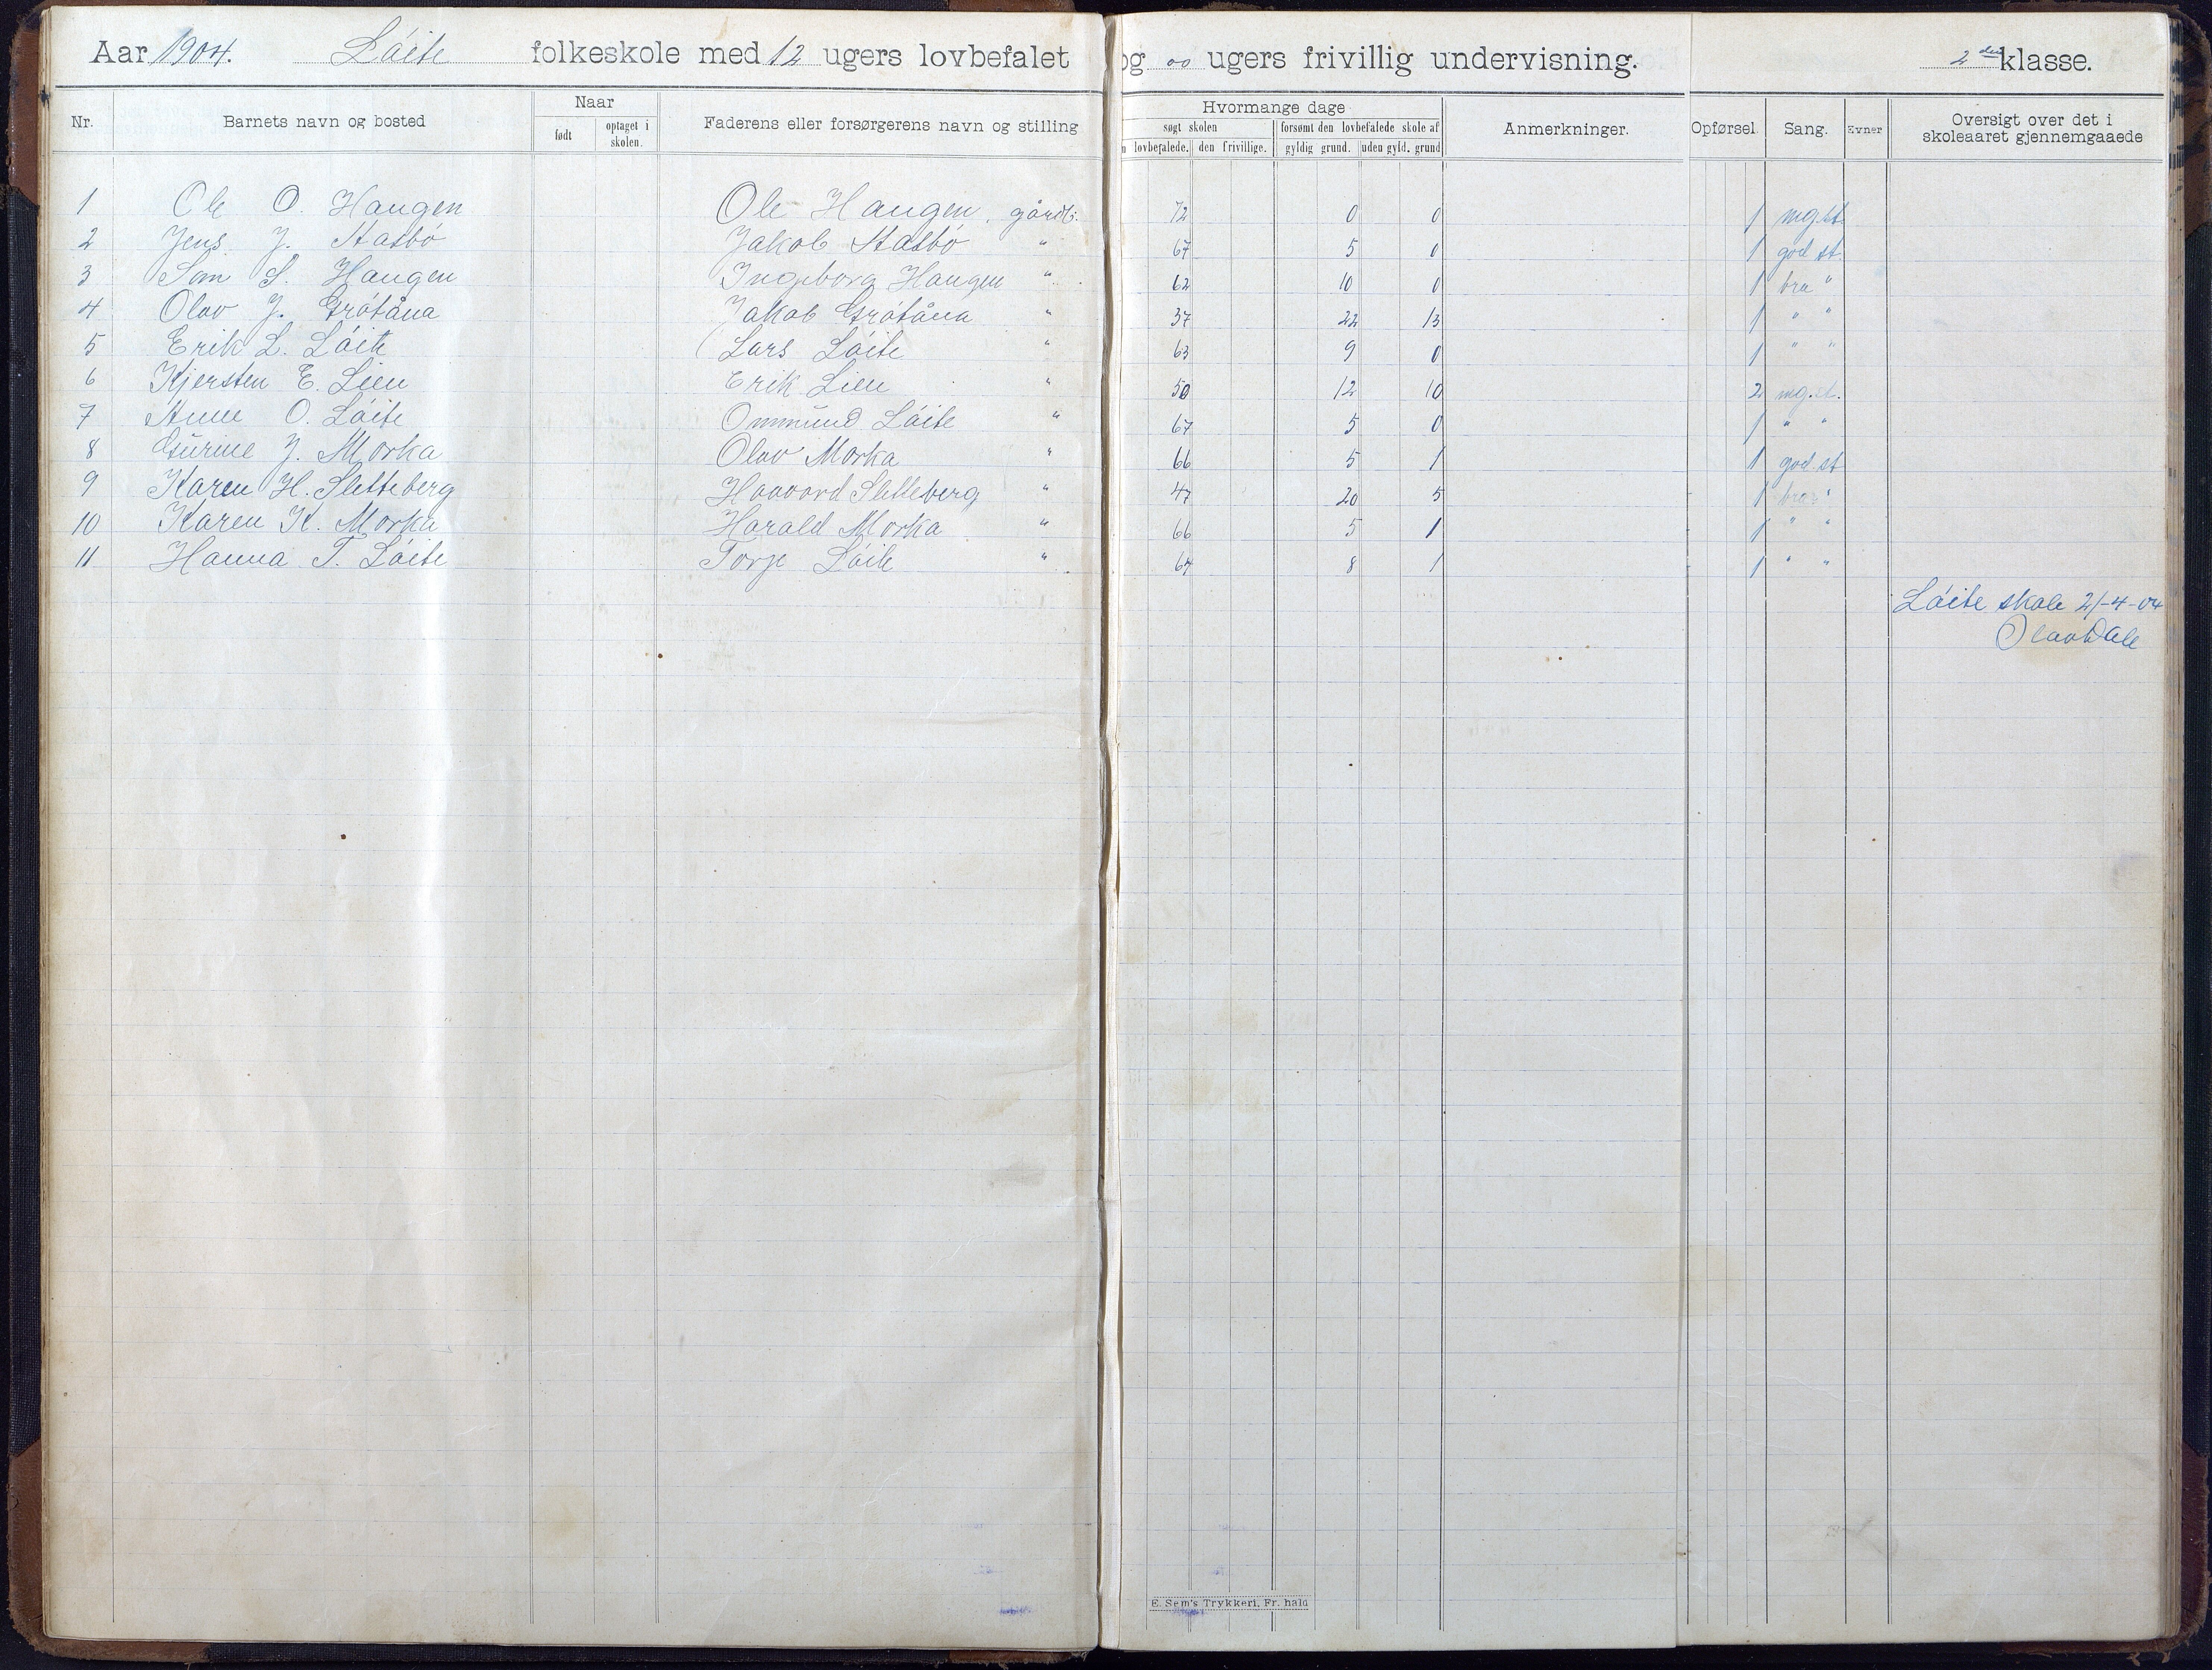 Aar 1904. Lóite folkeskole med 12 ugers lovbefalet og 00 ugers frivillig undervisning. 2den klasse.
Nr. Barnets navn og bosted Naar født optaget i skolen. Faderens eller forsørgerens navn og stilling Hvormange dage søgt skolen lovbefalede. den frivillige. forsømt den lovbefalede skole af gyldig grund. uden gyld. grund Anmerkninger. Opførsel. Sang. Evner Oversigt over det i skoleaaret gjennemgaaede
1 Ole O. Haugen Ole Haugen, gårdb. 72 0 0 1 mg.st.
2 Jens J. Statbó Jakob Statbó " 67 5 0 1 god st.
3 S. Haugen Ingeborg Haugen " 62 10 0 1 bra "
4 Olav J. Grótåna Jakob Grótåna " 37 22 13 1 " "
5 Erik L. Lóite Lars Lóite " 63 9 0 1 " "
6 Kjersten E. Lien Erik Lien " 50 12 10 2 mg.st.
7 Anne O. Lóite Ommund Lóite " 67 5 0 1 " "
8 Gurine J. Morka Olav Morka " 66 5 1 1 god.st
9 Karen H. Sletteberg Haavard Sletteberg " 47 20 5 1 bra "
10 Karen K. Morka Harald Morka " 66 5 1 1 " "
11 Hanna T. Lóite Torje Lóite " 8 1 1 " "
Lóite skole 21-4-04
Olav Dale
E. Sem's Trykkeri, Fr. hald